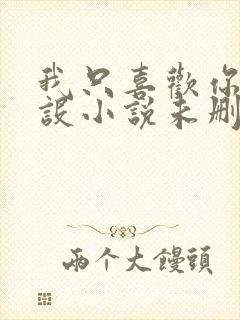 我只喜歡你
設小說未刪
兩个大饅頭